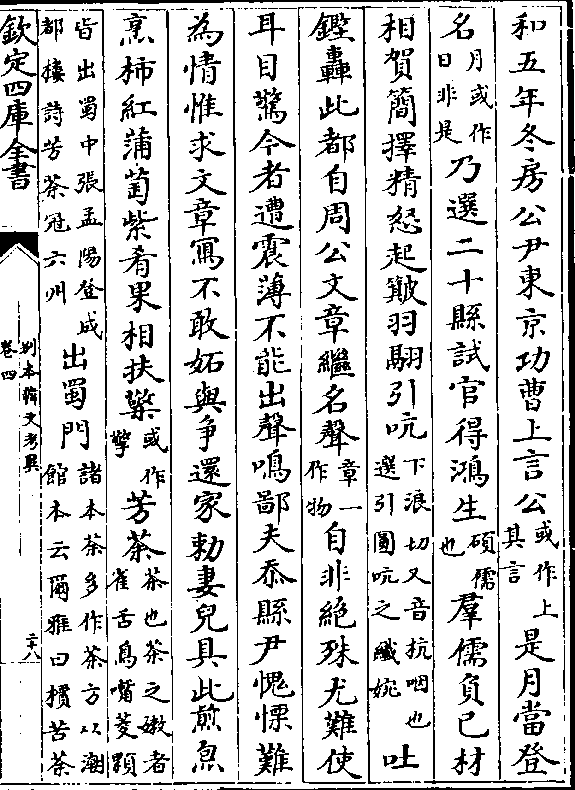 和五年冬房公尹東京功曹上言公或作上其言是月當登
名月或作日非是乃選二十縣試官得鴻生碩儒也羣儒負己材
相賀簡擇精怒起簸羽翮引吭下浪切又音抗咽也選引圜吭之纖婉吐
鏗轟此都自周公文章繼名聲章一作物自非絶殊尤難使
耳目驚今者遭震薄不能出聲鳴鄙夫忝縣尹愧慄難
為情惟求文章寫不敢妬與爭還家勅妻兒具此煎炰
烹柿紅蒲萄紫肴果相扶檠或作擎芳茶茶也茶之嫩者雀舌鳥嘴麥顆
皆出蜀中張孟陽登成都樓詩芳茶冠六州出蜀門諸本茶多作荼方以潮館本云爾雅曰檟苦荼
欽定四庫全書
別本韓文考異
卷四
二十八